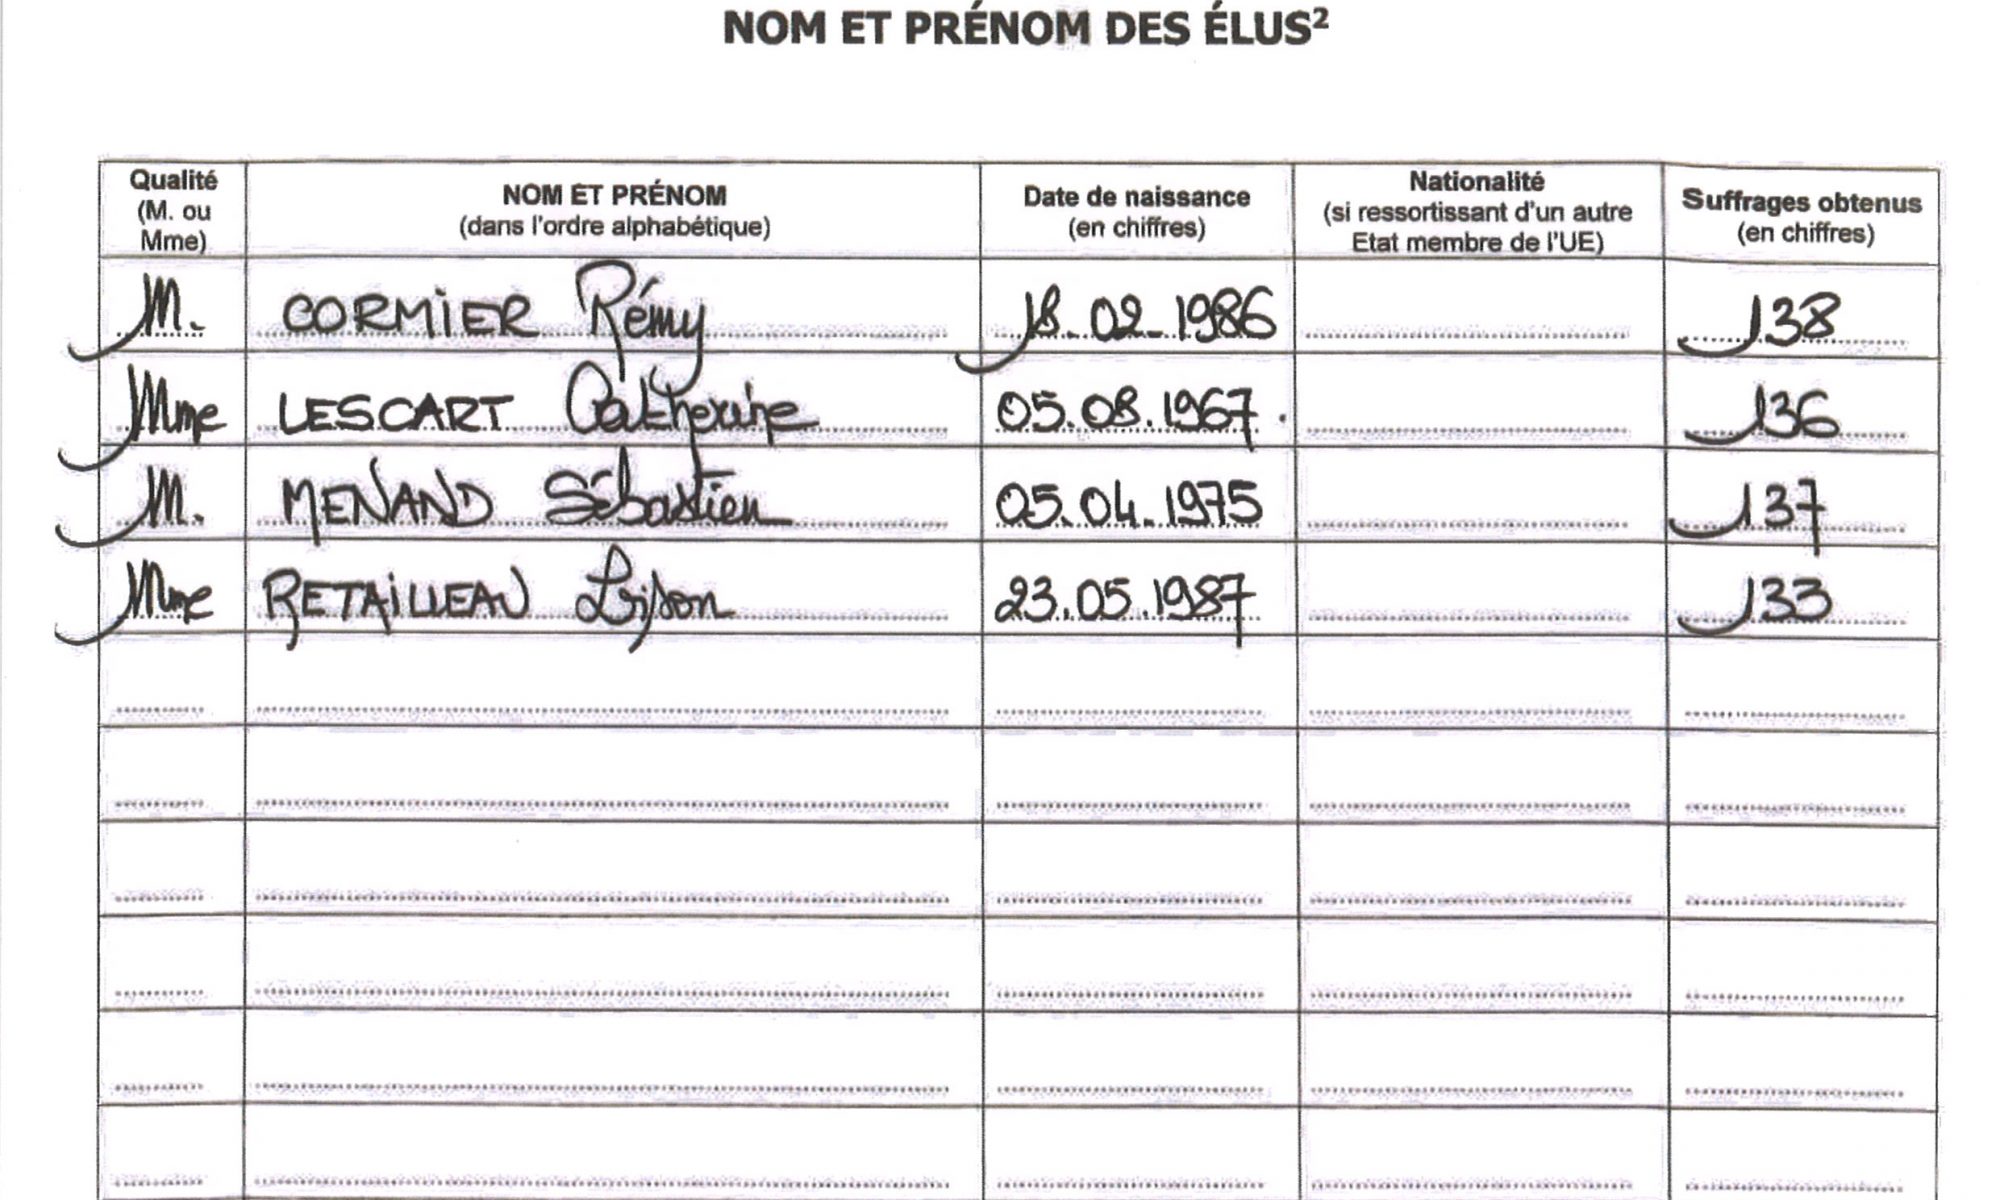 NOM ET PRÉNOM DES ÉLUS²
Qualité (M. ou Mme) NOM ET PRÉNOM (dans l'ordre alphabétique) Date de naissance (en chiffres) Nationalité (si ressortissant d'un autre Etat membre de l'UE) Suffrages obtenus (en chiffres)
M. CORMIER Rémy 18.02.1986 138
Mme LESCART Catherine 05.08.1967. 136
M. MENAND Sébastien 05.04.1975 137
Mme RETAILLEAU Lison 23.05.1987 133